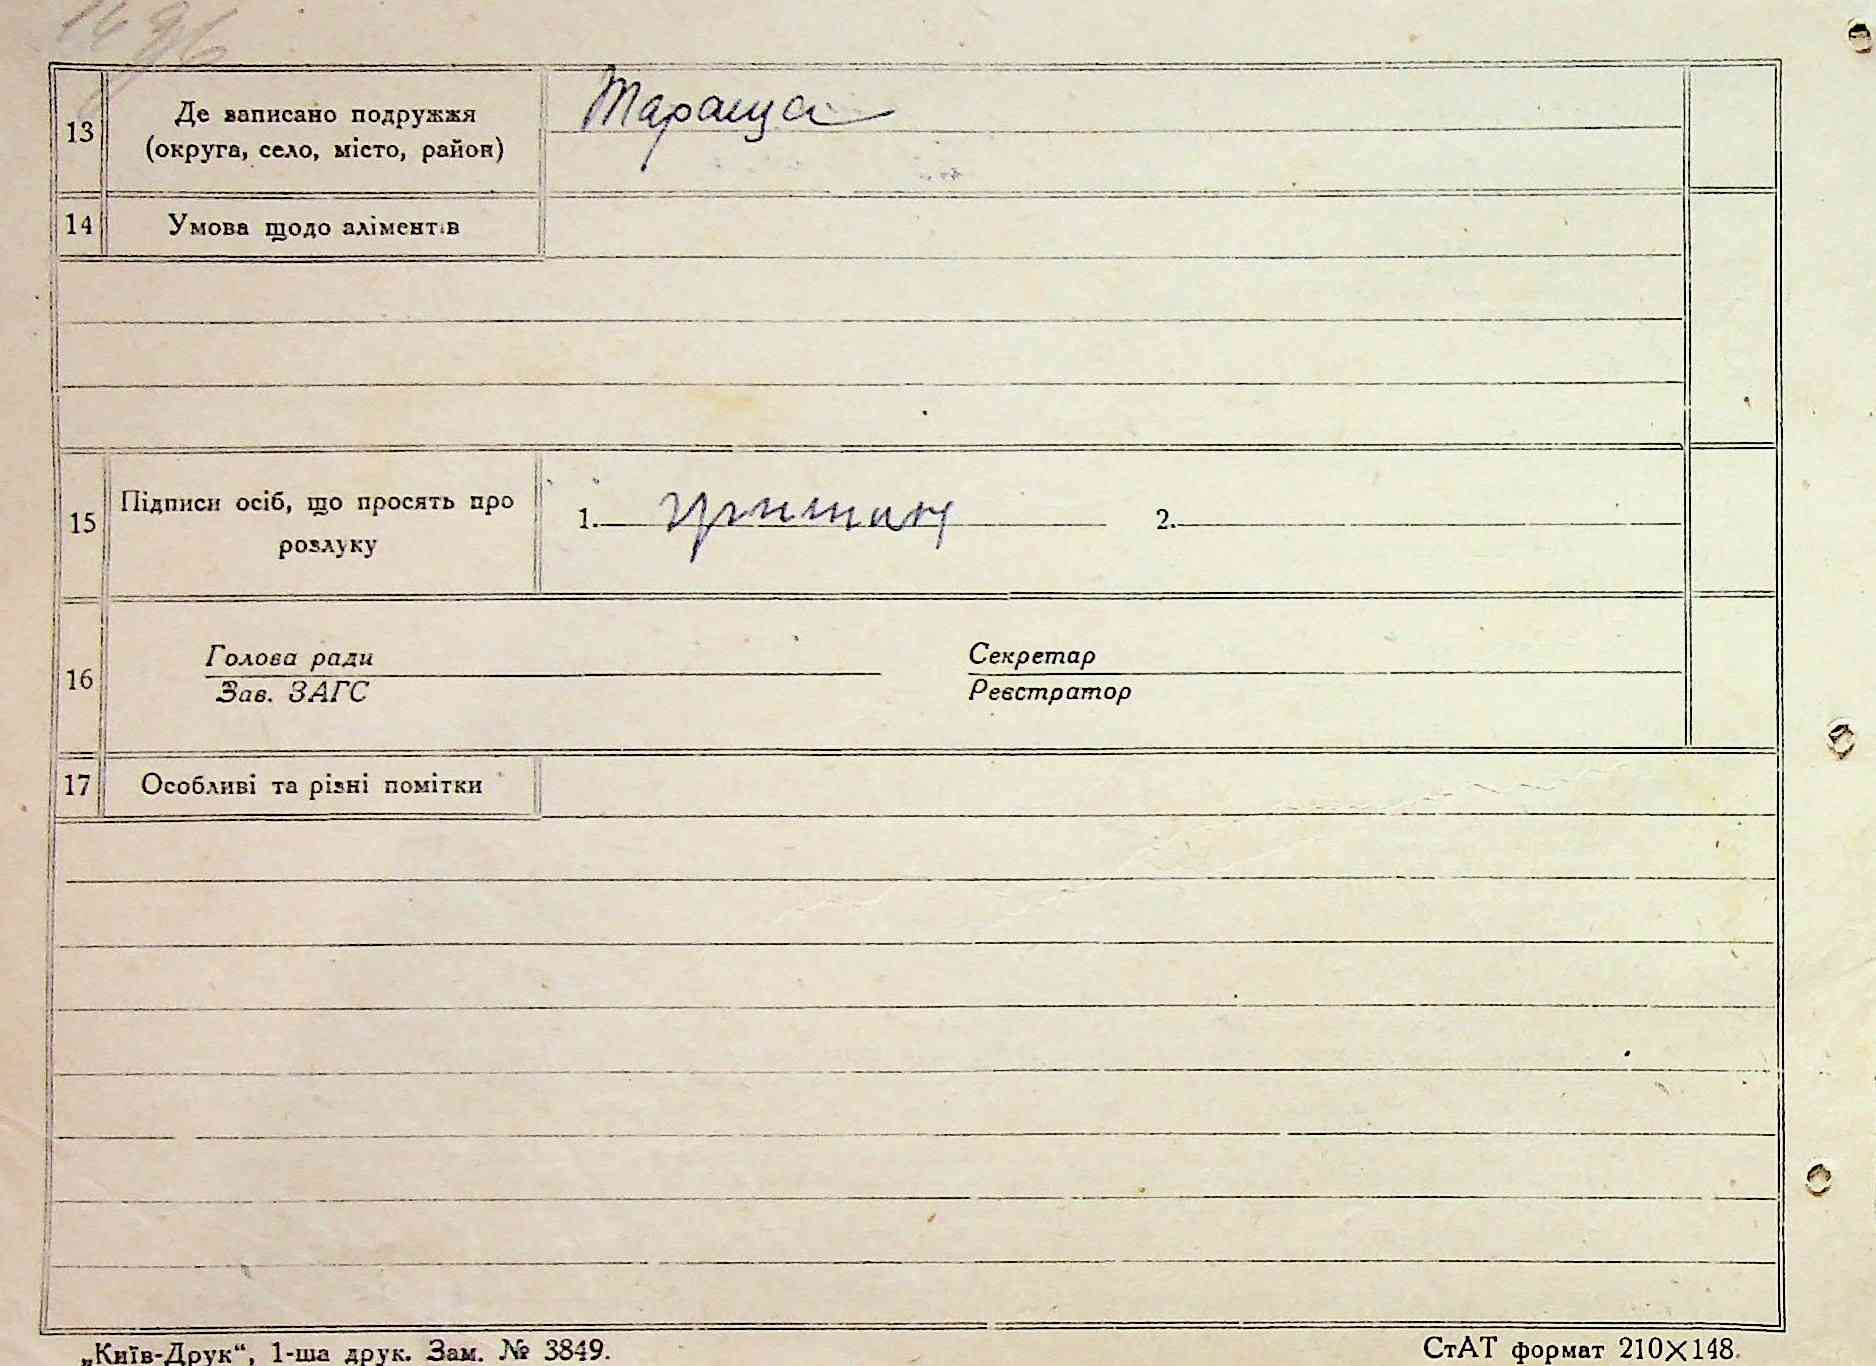 13
Де записано подружжя
(округа, село, місто, район)
Тараща
14
Умова щодо аліментів
15
Підписи осіб, що просять про
розлуку
1.
2.
16
Голова ради
Зав. ЗАГС
Секретар
Реєстратор
17
Особливі та різні помітки
„Київ-Друк“, 1-ша друк. Зам. № 3849.
СтАТ формат 210×148.